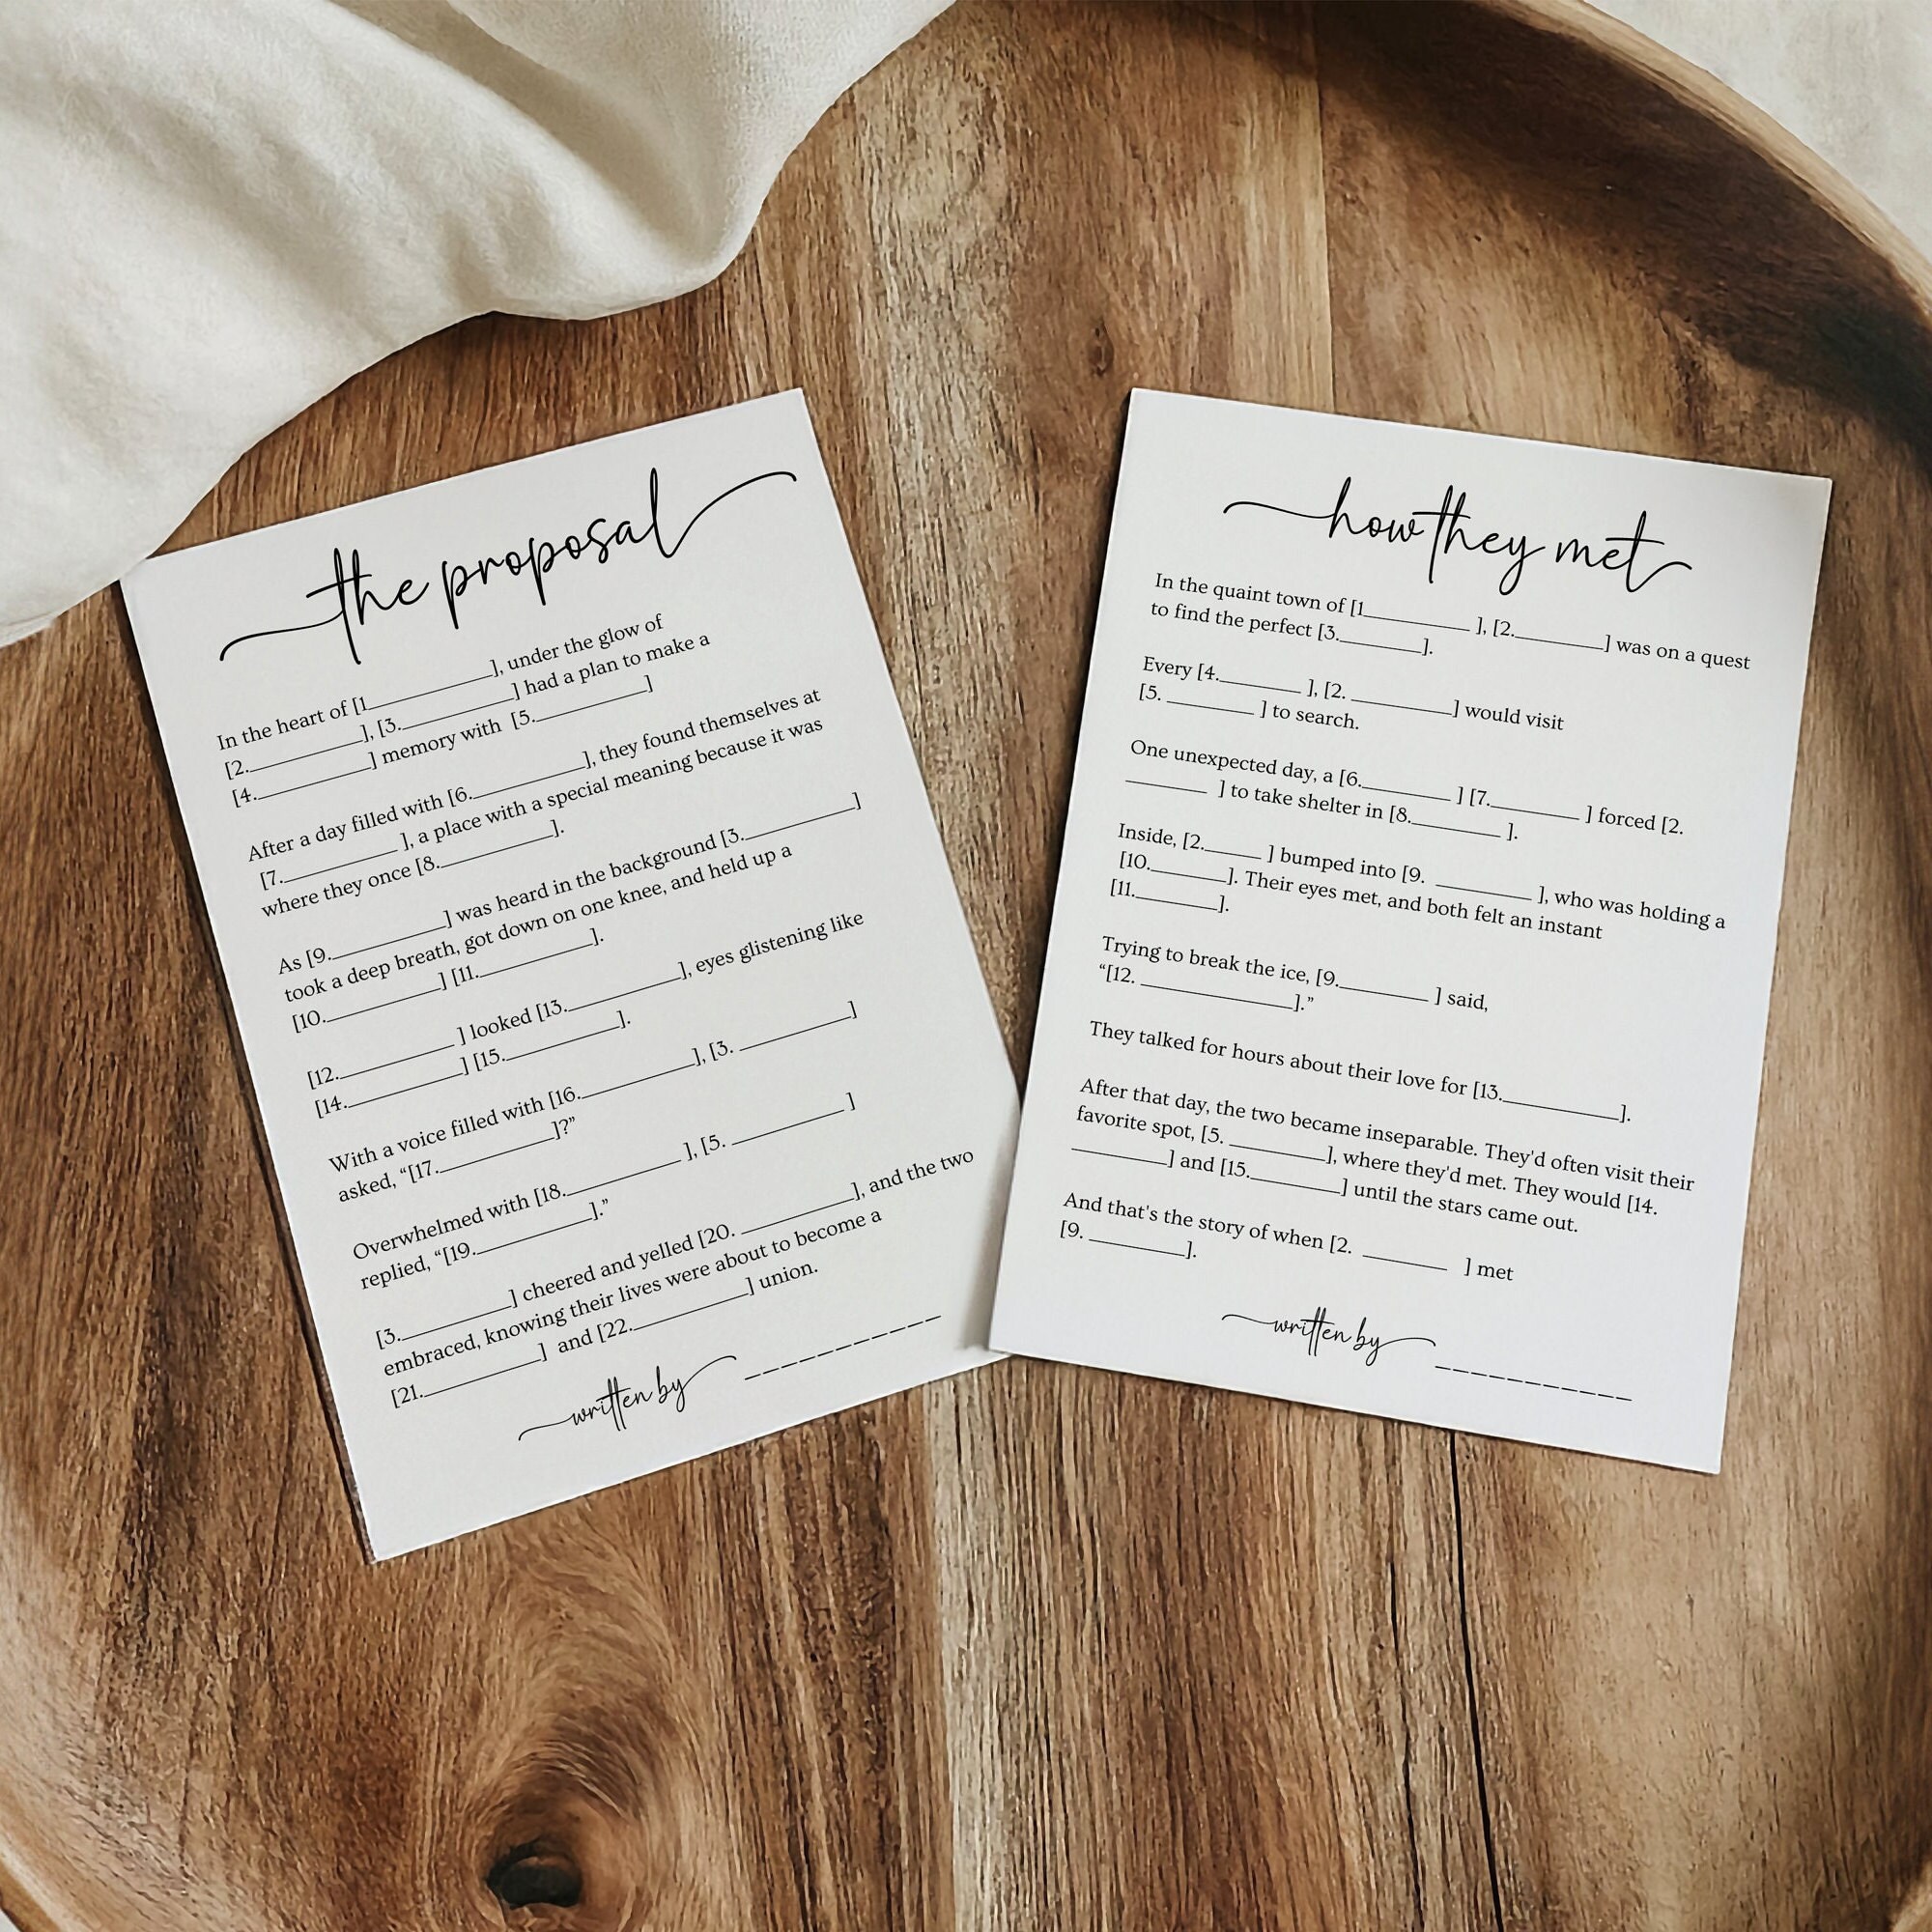 the proposal
In the heart of [1____________], under the glow of
[2.____________], [3.____________] had a plan to make a
[4.____________] memory with [5.____________]
After a day filled with [6.____________], they found themselves at
[7.____________ ], a place with a special meaning because it was
where they once [8.____________].
As [9.____________] was heard in the background [3.____________]
took a deep breath, got down on one knee, and held up a
[10.____________] [11.____________].
[12.____________ ] looked [13.____________], eyes glistening like
[14.____________] [15.____________].
With a voice filled with [16.____________], [3. ____________]
asked, “[17.____________]?”
Overwhelmed with [18.____________ ], [5. ____________ ]
replied, “[19.____________].”
[3.____________] cheered and yelled [20. ____________], and the two
embraced, knowing their lives were about to become a
[21.____________] and [22.____________] union.
written by __________
how they met
In the quaint town of [1___________ ], [2._________] was on a quest
to find the perfect [3.________].
Every [4.________ ], [2. __________] would visit
[5. _________ ] to search.
One unexpected day, a [6._________ ] [7._________ ] forced [2.
________ ] to take shelter in [8._________ ].
Inside, [2.______ ] bumped into [9. __________ ], who was holding a
[10.________]. Their eyes met, and both felt an instant
[11.________].
Trying to break the ice, [9._________ ] said,
“[12. _______________].”
They talked for hours about their love for [13.____________].
After that day, the two became inseparable. They'd often visit their
favorite spot, [5. __________], where they'd met. They would [14.
__________] and [15._________] until the stars came out.
And that's the story of when [2. _________ ] met
[9. __________].
written by __________